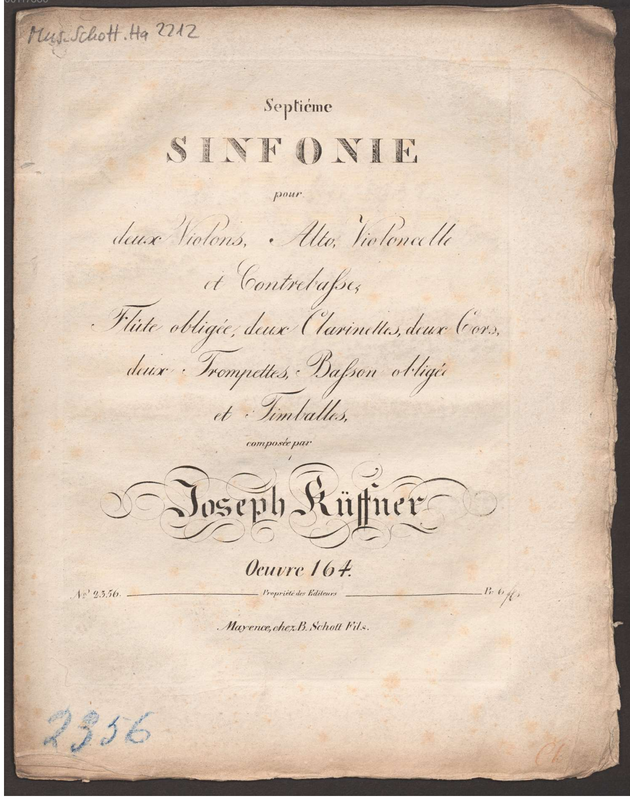 Mus. Schott. Ha 2212
Septiéme
SINFONIE
pour
deux Violons, Alto, Violoncelle
et Contrebasse,
Flûte obligée, deux Clarinettes, deux Cors,
deux Trompettes, Basson obligé
et Timballes,
composée par
Joseph Küffner
Oeuvre 164.
Nº 2356. Propriété des Editeurs Pr.
Mayence, chez B. Schott Fils.
2356